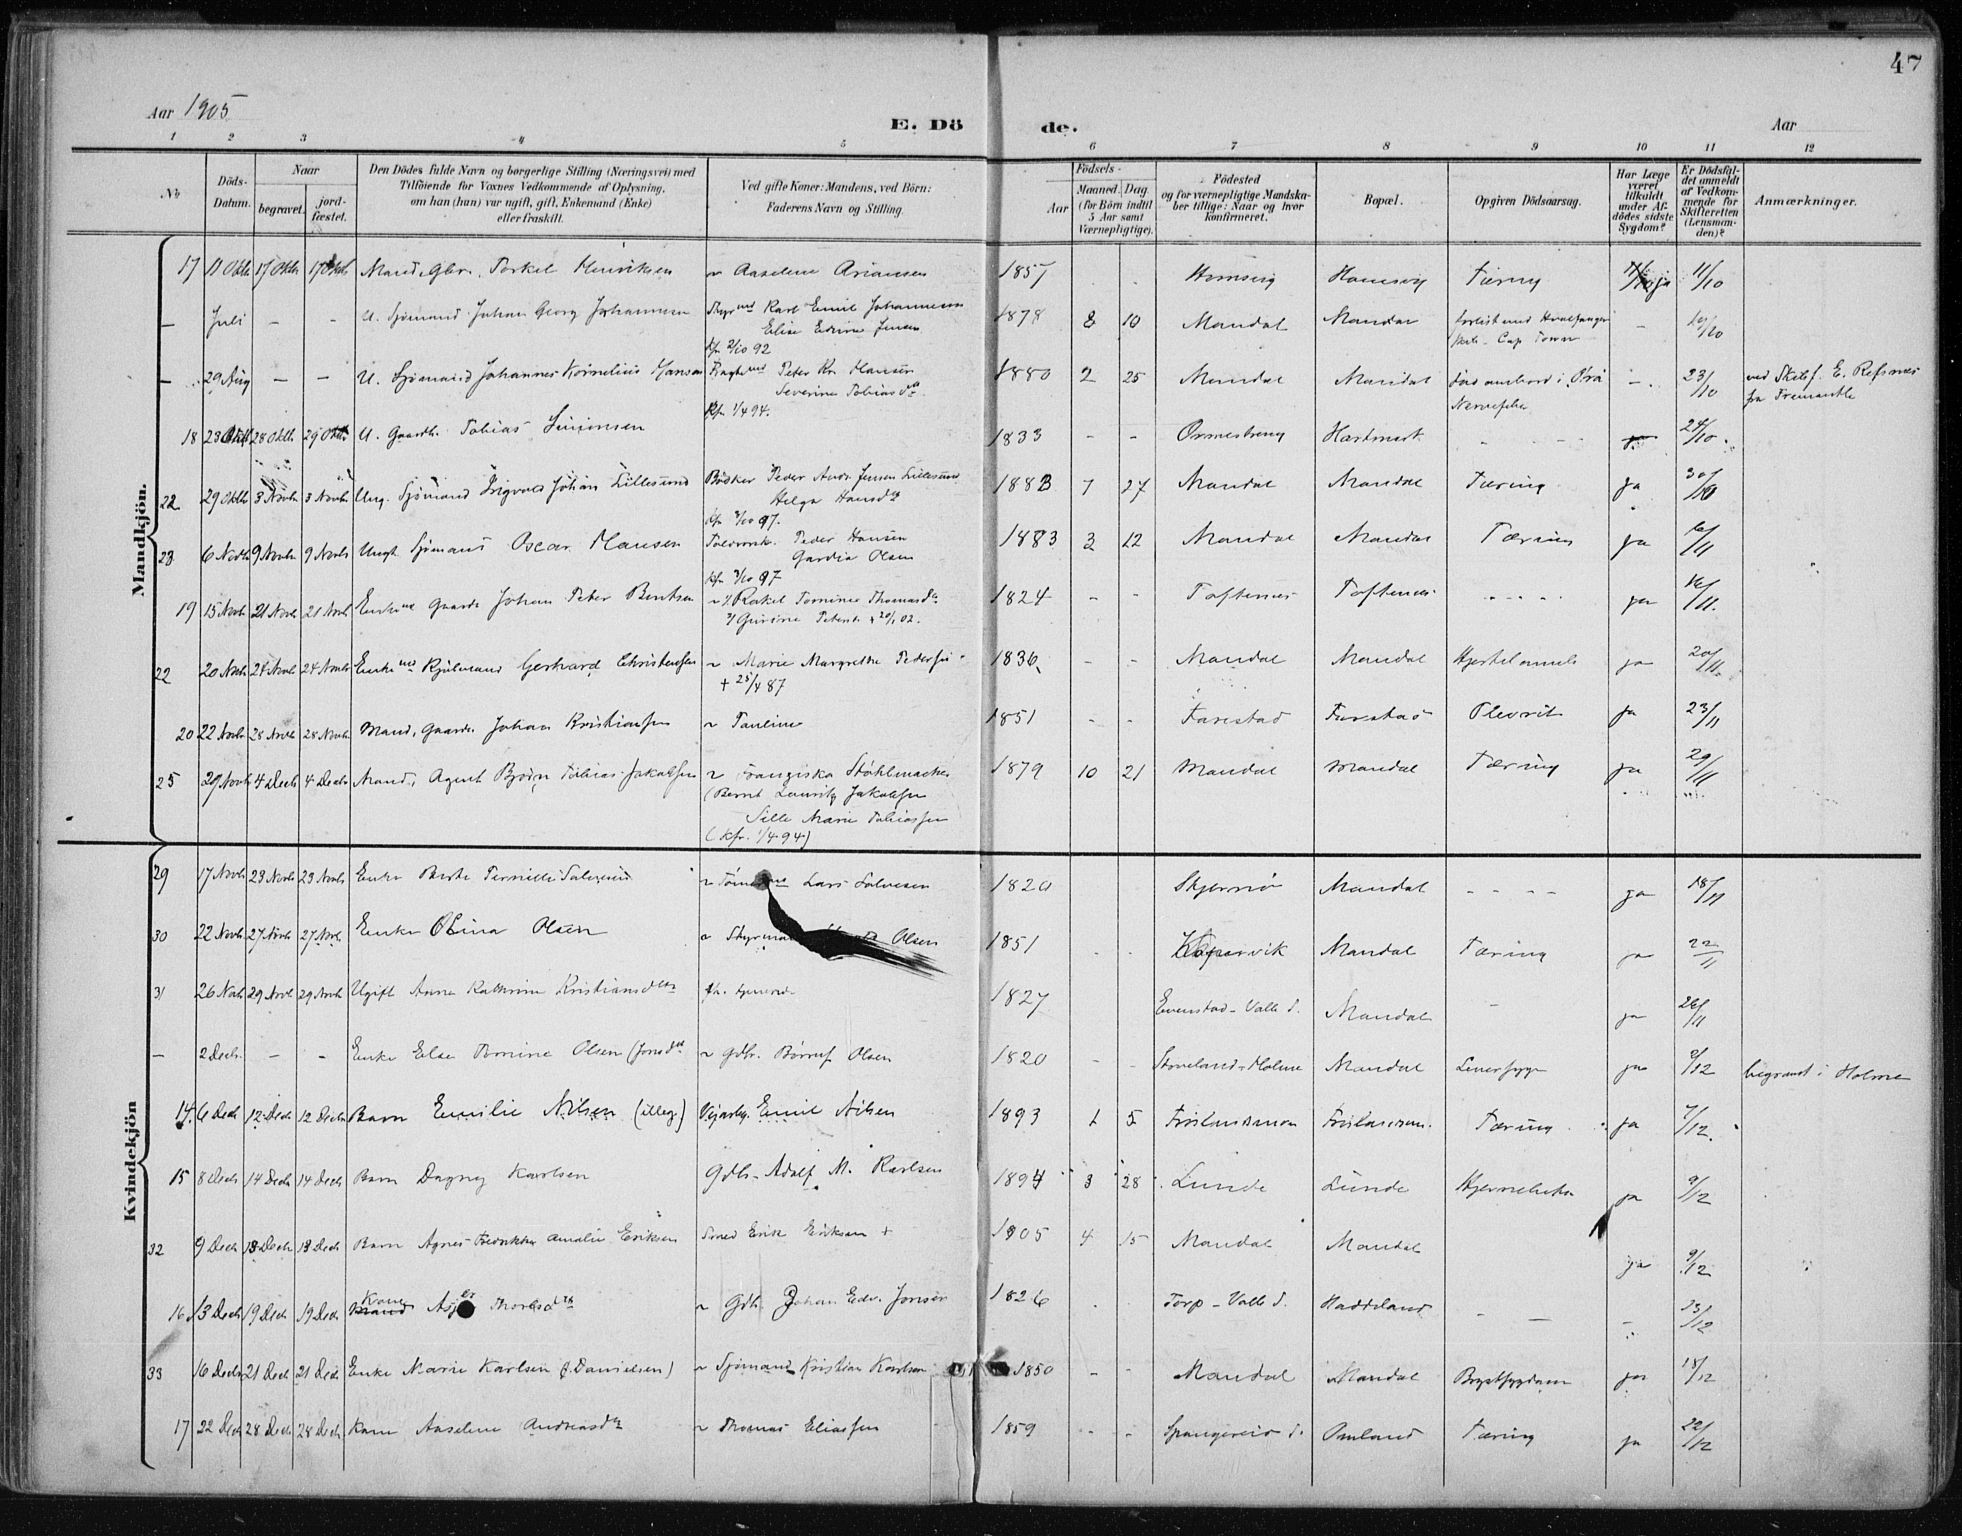 47
Aar 1905
E. Dö de.
Aar
1 2 3 4 5 6 7 8 9 10 11 12
No.
Döds-Datum.
Naar
begravet.
jord-fæstet.
Den Dödes fulde Navn og borgerlige Stilling (Næringsvei) med
Tilföiende for Voxnes Vedkommende af Oplysning,
om han (hun) var ugift, gift, Enkemand (Enke)
eller fraskilt.
Ved gifte Koner: Mandens, ved Börn:
Faderens Navn og Stilling.
Födsels-
Aar
Maaned. Dag
(for Börn indtil
5 Aar samt
Værnepligtige).
Födested
og for værnepligtige Mandska-
ber tillige: Naar og hvor
konfirmeret.
Bopæl.
Opgiven Dödsaarsag.
Har Læge
været
tilkaldt
under Af-
dödes sidste
Sygdom?
Er Dödsfal-
det anmeldt
af Vedkom-
mende for
Skifteretten
(Lensman-
den)?
Anmærkninger.
Mandkjön.
17 11 Oktb 17 Oktb 17 Oktb Mand, Gbr. Torkel Henriksen ~ Aaselene 1857 Tæring ja 11/10
— Juli – – U. Sjömand Johan Georg Johannesen Styrmd Karl Emil Johannesen 1878 8 10 Mandal Mandal forlist med Hvalfanger – 19/10
Elise Jensen
Kfr 2/10 92
Cap Town
— 29 Aug – – U. Sjömand Johannes Kornelius Hansen Peter Kr. Hansen 1880 2 25 Mandal Mandal – 23/10 ved Skibsf. E. Refsnes
Severine Tobiasdtr
Kfr 1/4 94.
fra Fremantle
18 23 Oktb 28 Oktb 29 Oktb U. Gaardb. Tobias Simonsen 1833 – – Ormestreng 24/10
22 29 Oktb 3 Novb 3 Novb Ung. Sjömand Sigvard Johan Lillesund Bödker Peder Andr. Jensen Lillesund 1883 7 27 Mandal Mandal Tæring ja 30/10
Helga Hansdtr
Kfr 3/10 97.
23 6 Novb 9 Novb 9 Novb Ungk Sjömand Oscar Hansen Peder Hansen 1883 3 12 Mandal Mandal Tæring ja 6/11
Olsen
Kfr 3/10 97
19 15 Novb 21 Novb 21 Novb Enkemd Gaardb Johan Peter Berntsen ~ 1/ Rakel Tomine Thomasdtr 1824 – – Toftenes Toftenes ja 16/11.
2/ Gurine Petersd. + 20/1 02.
22 20 Novb 24 Novb 24 Novb Enkemd Gerhard Christensen ~ Marie Margrethe Pedersen 1836 – – Mandal Mandal ja 20/11.
+ 25/4 87
20 22 Novb 28 Novb 28 Novb Mand, Gaardb. Johan Kristiansen ~ Pauline 1851 – – Farestad Farestad Plevrit ja 23/11
25 29 Novb 4 Decb 4 Decb Mand, Agent Björn Tobias Jakobsen ~ Franziska 1879 10 21 Mandal Mandal Tæring ja 29/11
(Bernt Lauritz Jakobsen
Sille Marie Tobiassen
(Kfr. 1/4 94)
Kvindekjön
29 17 Novb 23 Novb 23 Novb Enke Berte Pernille Salvesen ~ Lars Salvesen 1820 Skjernö Mandal – – – – ja 18/11
30 22 Novb 27 Novb 27 Novb Enke Olina Olsen ~ Olsen 1851 – – Mandal Tæring ja 22/11
31 26 Novb 29 Novb 29 Novb Ugift Anne Kathrine Kristiansdtr 1827 Evenstad – Valle S. Mandal – ja 26/11
— 2 Decb – – Enke Else Tomine Olsen (Jonsdtr ~ Gdbr. Olsen 1820 – – Stoveland – Holme Mandal ja 2/12 begravet i Holme
14 6 Decb 12 Decb 12 Decb Barn Emilie Nilsen (illeg.) Emil Nilsen 1893 1 5 Tæring ja 7/12
15 8 Decb 14 Decb 14 Decb Barn Dagny Karlsen Gdb. Adolf M. Karlsen 1894 3 28 Lunde Lunde ja 9/12
32 9 Decb 13 Decb 13 Decb Barn Agnes Fredrikke Amalie Eriksen Smed Erik Eriksen + 1905 4 15 Mandal Mandal ja 9/12
16 13 Decb 19 Decb 19 Decb Kone Thorlsdtr ~ Gdb. Johan Edv. Jonsen 1826 Torp – Valle S. Haddeland – 13/12
33 16 Decb 21 Decb 21 Decb Enke Marie Karlsen (f. Danielsen) ~ Sjömand Kristian Karlsen 1850 – – Mandal Mandal Brystsygdom ja 18/12
17 22 Decb 28 Decb 28 Decb Kone Aaselene Andreasdtr ~ Thomas Eliassen 1859 – – Spangereid S. Omland Tæring ja 22/12